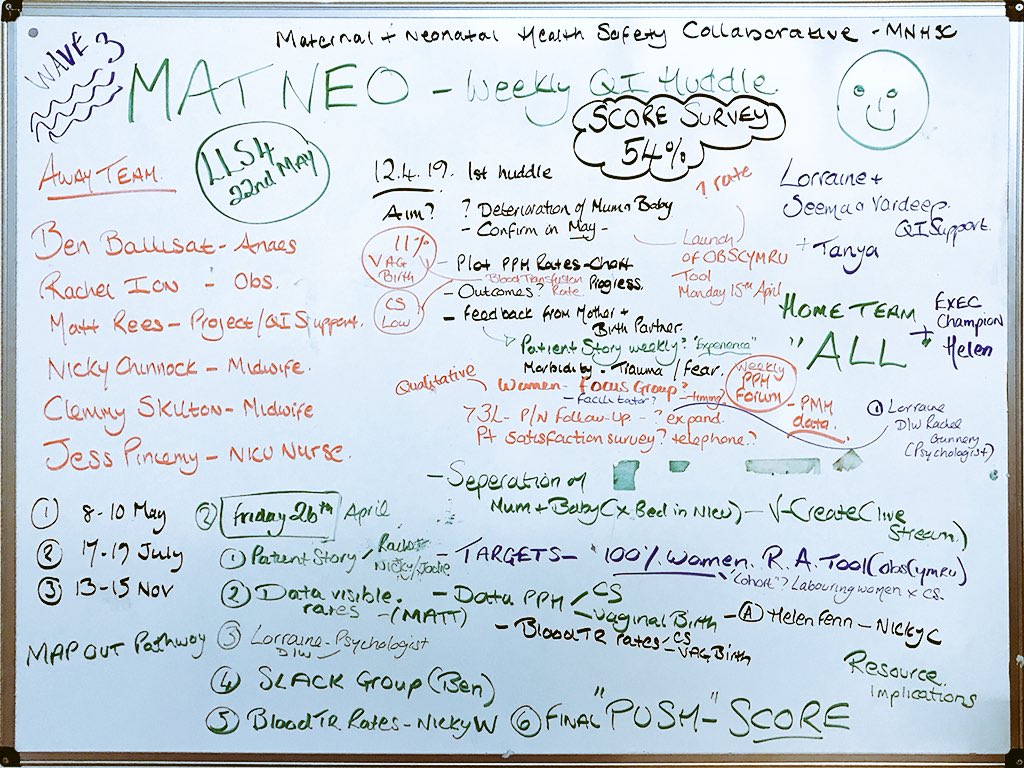 Maternal + Neonatal Health Safety Collaborative - MNHSC
WAVE 3
MAT NEO - Weekly QI Huddle
SCORE SURVEY
54%
LLS4
22nd MAY
AWAY TEAM.
Ben Ballisat - Anaes
Rachel Ion - Obs.
Matt Rees - Project/QI Support.
Nicky Chinnock - Midwife.
Clemmy Skilton - Midwife
Jess Pincemy - NICU Nurse.
12.4.19. 1st huddle
Aim? ? Deterioration of Mum + Baby
- Confirm in May -
11%
VAG
Birth
CS
Low
- Plot PPH Rates - Chart
Blood Transfusion Rate
Progress.
- Outcomes?
- Feedback from Mother +
Birth Partner.
Patient Story weekly? "Experience"
Morbidity - Trauma / Fear.
Qualitative
Women - Focus Group? - timing
- Facilitator?
73L - P/N Follow-up - ? expand.
Pt satisfaction survey? telephone?
Weekly
PPH
Forum
- PMH
data.
? rate
Launch
of OBSCYMRU
Tool
Monday 15th April
Lorraine +
Seema + Vardeep.
QI Support.
+ Tanya
HOME TEAM
"ALL
+
EXEC
Champion
Helen
① Lorraine
D/W Rachel
Gunnery
(Psychologist)
- Seperation of
Mum + Baby (x Bed in NICU) - V-Create (live
Stream.)
① 8-10 May
② 17-19 July
③ 13-15 Nov
MAP OUT Pathway
② Friday 26th April
① Patient Story / Rachel
Nicky/Jodie
② Data visible.
rates - (MATT)
③ Lorraine - Psychologist
D/W
④ SLACK Group (Ben)
⑤ Blood TR Rates - Nicky W
⑥ FINAL "PUSH" - SCORE
- TARGETS - '100% women. R.A. Tool (obs Cymru)
"Cohort"? Labouring women x CS.
- Data PPH / CS
- Vaginal Birth - Ⓐ Helen Fenn - Nicky C
- Blood TR Rates - CS
- VAG Birth
Resource
implications